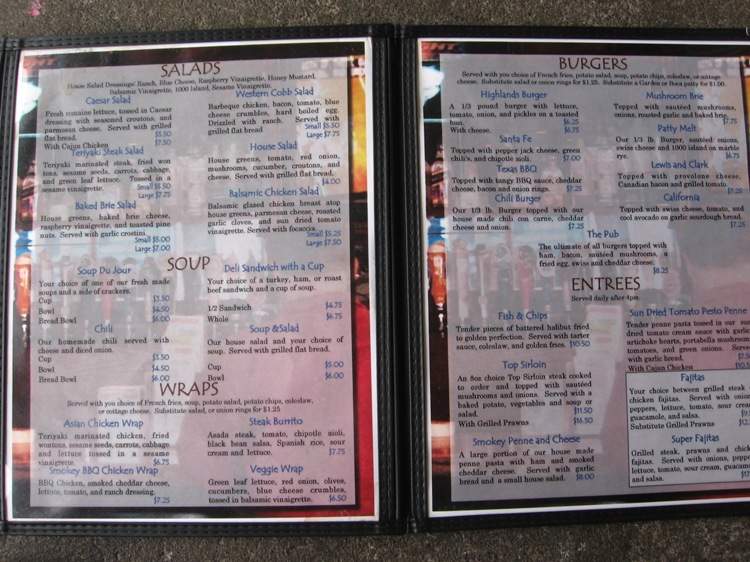 SALADS
House Salad Dressings: Ranch, Blue Cheese, Raspberry Vinaigrette, Honey Mustard,
Balsamic Vinaigrette, 1000 Island, Sesame Vinaigrette.
Caesar Salad
Fresh romaine lettuce, tossed in Caesar
dressing with seasoned croutons, and
parmesan cheese. Served with grilled
flat bread. $5.50
With Cajun Chicken $7.50
Teriyaki Steak Salad
Teriyaki marinated steak, fried won
tons, sesame seeds, carrots, cabbage,
and green leaf lettuce. Tossed in a
sesame vinaigrette. Small $5.50
Large $7.75
Baked Brie Salad
House greens, baked brie cheese,
raspberry vinaigrette, and toasted pine
nuts. Served with garlic crostini
Small $5.00
Large $7.00
Western Cobb Salad
Barbeque chicken, bacon, tomato, blue
cheese crumbles, hard boiled egg.
Drizzled with ranch. Served with
grilled flat bread Small $5.50
Large $7.75
House Salad
House greens, tomato, red onion,
mushrooms, cucumber, croutons, and
cheese. Served with grilled flat bread.
$4.00
Balsamic Chicken Salad
Balsamic glazed chicken breast atop
house greens, parmesan cheese, roasted
garlic cloves, and sun dried tomato
vinaigrette. Served with focaccia
Small $5.25
Large $7.50
SOUP
Soup Du Jour
Your choice of one of our fresh made
soups and a side of crackers.
Cup $3.50
Bowl $4.50
Bread Bowl $6.00
Chili
Our homemade chili served with
cheese and diced onion.
Cup $3.50
Bowl $4.50
Bread Bowl $6.00
Deli Sandwich with a Cup
Your choice of a turkey, ham, or roast
beef sandwich and a cup of soup.
1/2 Sandwich $4.75
Whole $6.75
Soup & Salad
Our house salad and your choice of
soup. Served with grilled flat bread.
Cup $5.00
Bowl $6.00
WRAPS
Served with you choice of French fries, soup, potato salad, potato chips, coleslaw,
or cottage cheese. Substitute salad, or onion rings for $1.25
Asian Chicken Wrap
Teriyaki marinated chicken, fried
wontons, sesame seeds, carrots, cabbage,
and lettuce tossed in a sesame
vinaigrette. $6.75
Smokey BBQ Chicken Wrap
BBQ Chicken, smoked cheddar cheese,
lettuce, tomato, and ranch dressing.
$7.25
Steak Burrito
Asada steak, tomato, chipotle aioli,
black bean salsa, Spanish rice, sour
cream and lettuce. $7.75
Veggie Wrap
Green leaf lettuce, red onion, olives,
cucumbers, blue cheese crumbles,
tossed in balsamic vinaigrette. $6.50
BURGERS
Served with you choice of French fries, potato salad, soup, potato chips, coleslaw, or cottage
cheese. Substitute salad or onion rings for $1.25. Substitute a Garden or Boca patty for $1.00.
Highlands Burger
A 1/3 pound burger with lettuce,
tomato, onion, and pickles on a toasted
bun. $6.25
With cheese. $6.75
Santa Fe
Topped with pepper jack cheese, green
chili's, and chipotle aioli. $7.00
Texas BBQ
Topped with tangy BBQ sauce, cheddar
cheese, bacon and onion rings. $7.25
Chili Burger
Our 1/3 lb. Burger topped with our
house made chili con carne, cheddar
cheese and onion. $7.25
Mushroom Brie
Topped with sautéed mushrooms,
onions, roasted garlic and baked brie.
$7.75
Patty Melt
Our 1/3 lb. Burger, sautéed onions,
swiss cheese and 1000 island on marble
rye. $6.75
Lewis and Clark
Topped with provolone cheese,
Canadian bacon and grilled tomato.
$7.25
California
Topped with swiss cheese, tomato, and
cool avocado on garlic sourdough bread.
$7.25
The Pub
The ultimate of all burgers topped with
ham, bacon, sautéed mushrooms, a
fried egg, swiss and cheddar cheese.
$8.25
ENTREES
Served daily after 4pm.
Fish & Chips
Tender pieces of battered halibut fried
to golden perfection. Served with tarter
sauce, coleslaw, and golden fries. $10.50
Top Sirloin
An 8oz choice Top Sirloin steak cooked
to order and topped with sautéed
mushrooms and onions. Served with a
baked potato, vegetables and soup or
salad. $11.50
With Grilled Prawns $16.50
Smokey Penne and Cheese
A large portion of our house made
penne pasta with ham and smoked
cheddar cheese. Served with garlic
bread and a small house salad. $8.00
Sun Dried Tomato Pesto Penne
Tender penne pasta tossed in our
dried tomato cream sauce with garlic
artichoke hearts, portabella mushroom
tomatoes, and green onions.
with garlic bread.
With Cajun Chicken
Fajitas
Your choice between grilled steak
chicken fajitas. Served with
peppers, lettuce, tomato, sour
guacamole, and salsa.
Substitute Grilled Prawns
Super Fajitas
Grilled steak, prawns and
fajitas. Served with onions,
lettuce, tomato, sour cream,
and salsa.